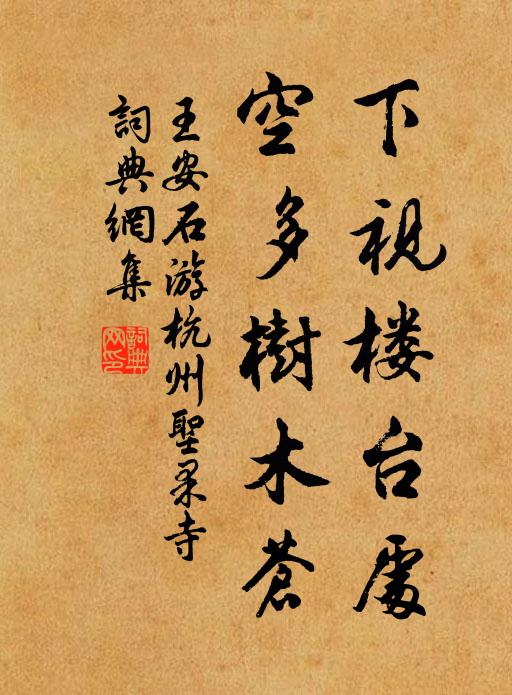 下视楼台處
空多樹木蒼
王安石游杭州聖果寺
詞典網集
詞典
网印